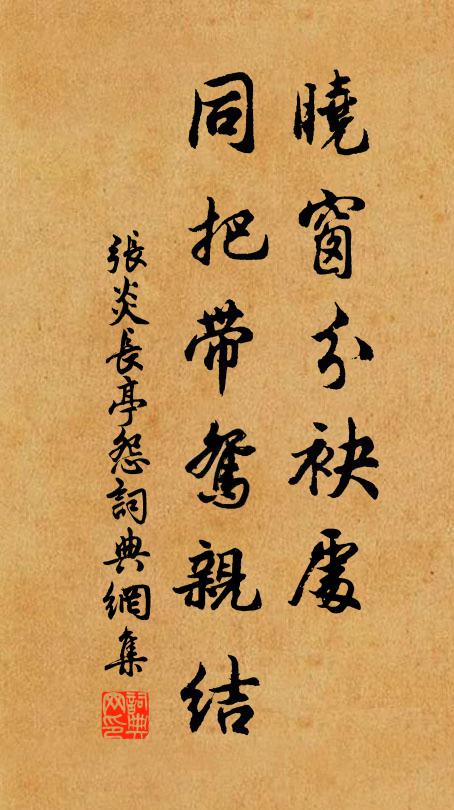 曉窗分袂處
同把帶鴛親結
張炎長亭怨詞典網集
詞典网印